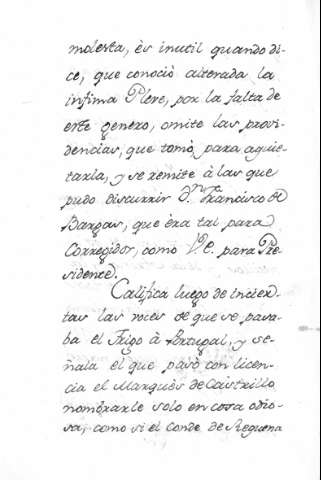 molesta, ès inutil quando di-
ce, que conociò alterada la
infima Pleve, por la falta de
este genero, omite las provi-
dencias, que tomò para aquie-
tarla, y se remite à las que
pudo discurrir D.n Francisco de
Bargas, que èra tal para
Corregidor, como V.E. para Pre-
sidente.
Califica luego de incier-
tas las voces de que se pasa-
ba el Trigo à Portugal, y se-
ñala el que pasò con licen-
cia el Marquès de Castrillo
nombrarle solo en cosa odio-
sa, como si el Conde de Requena